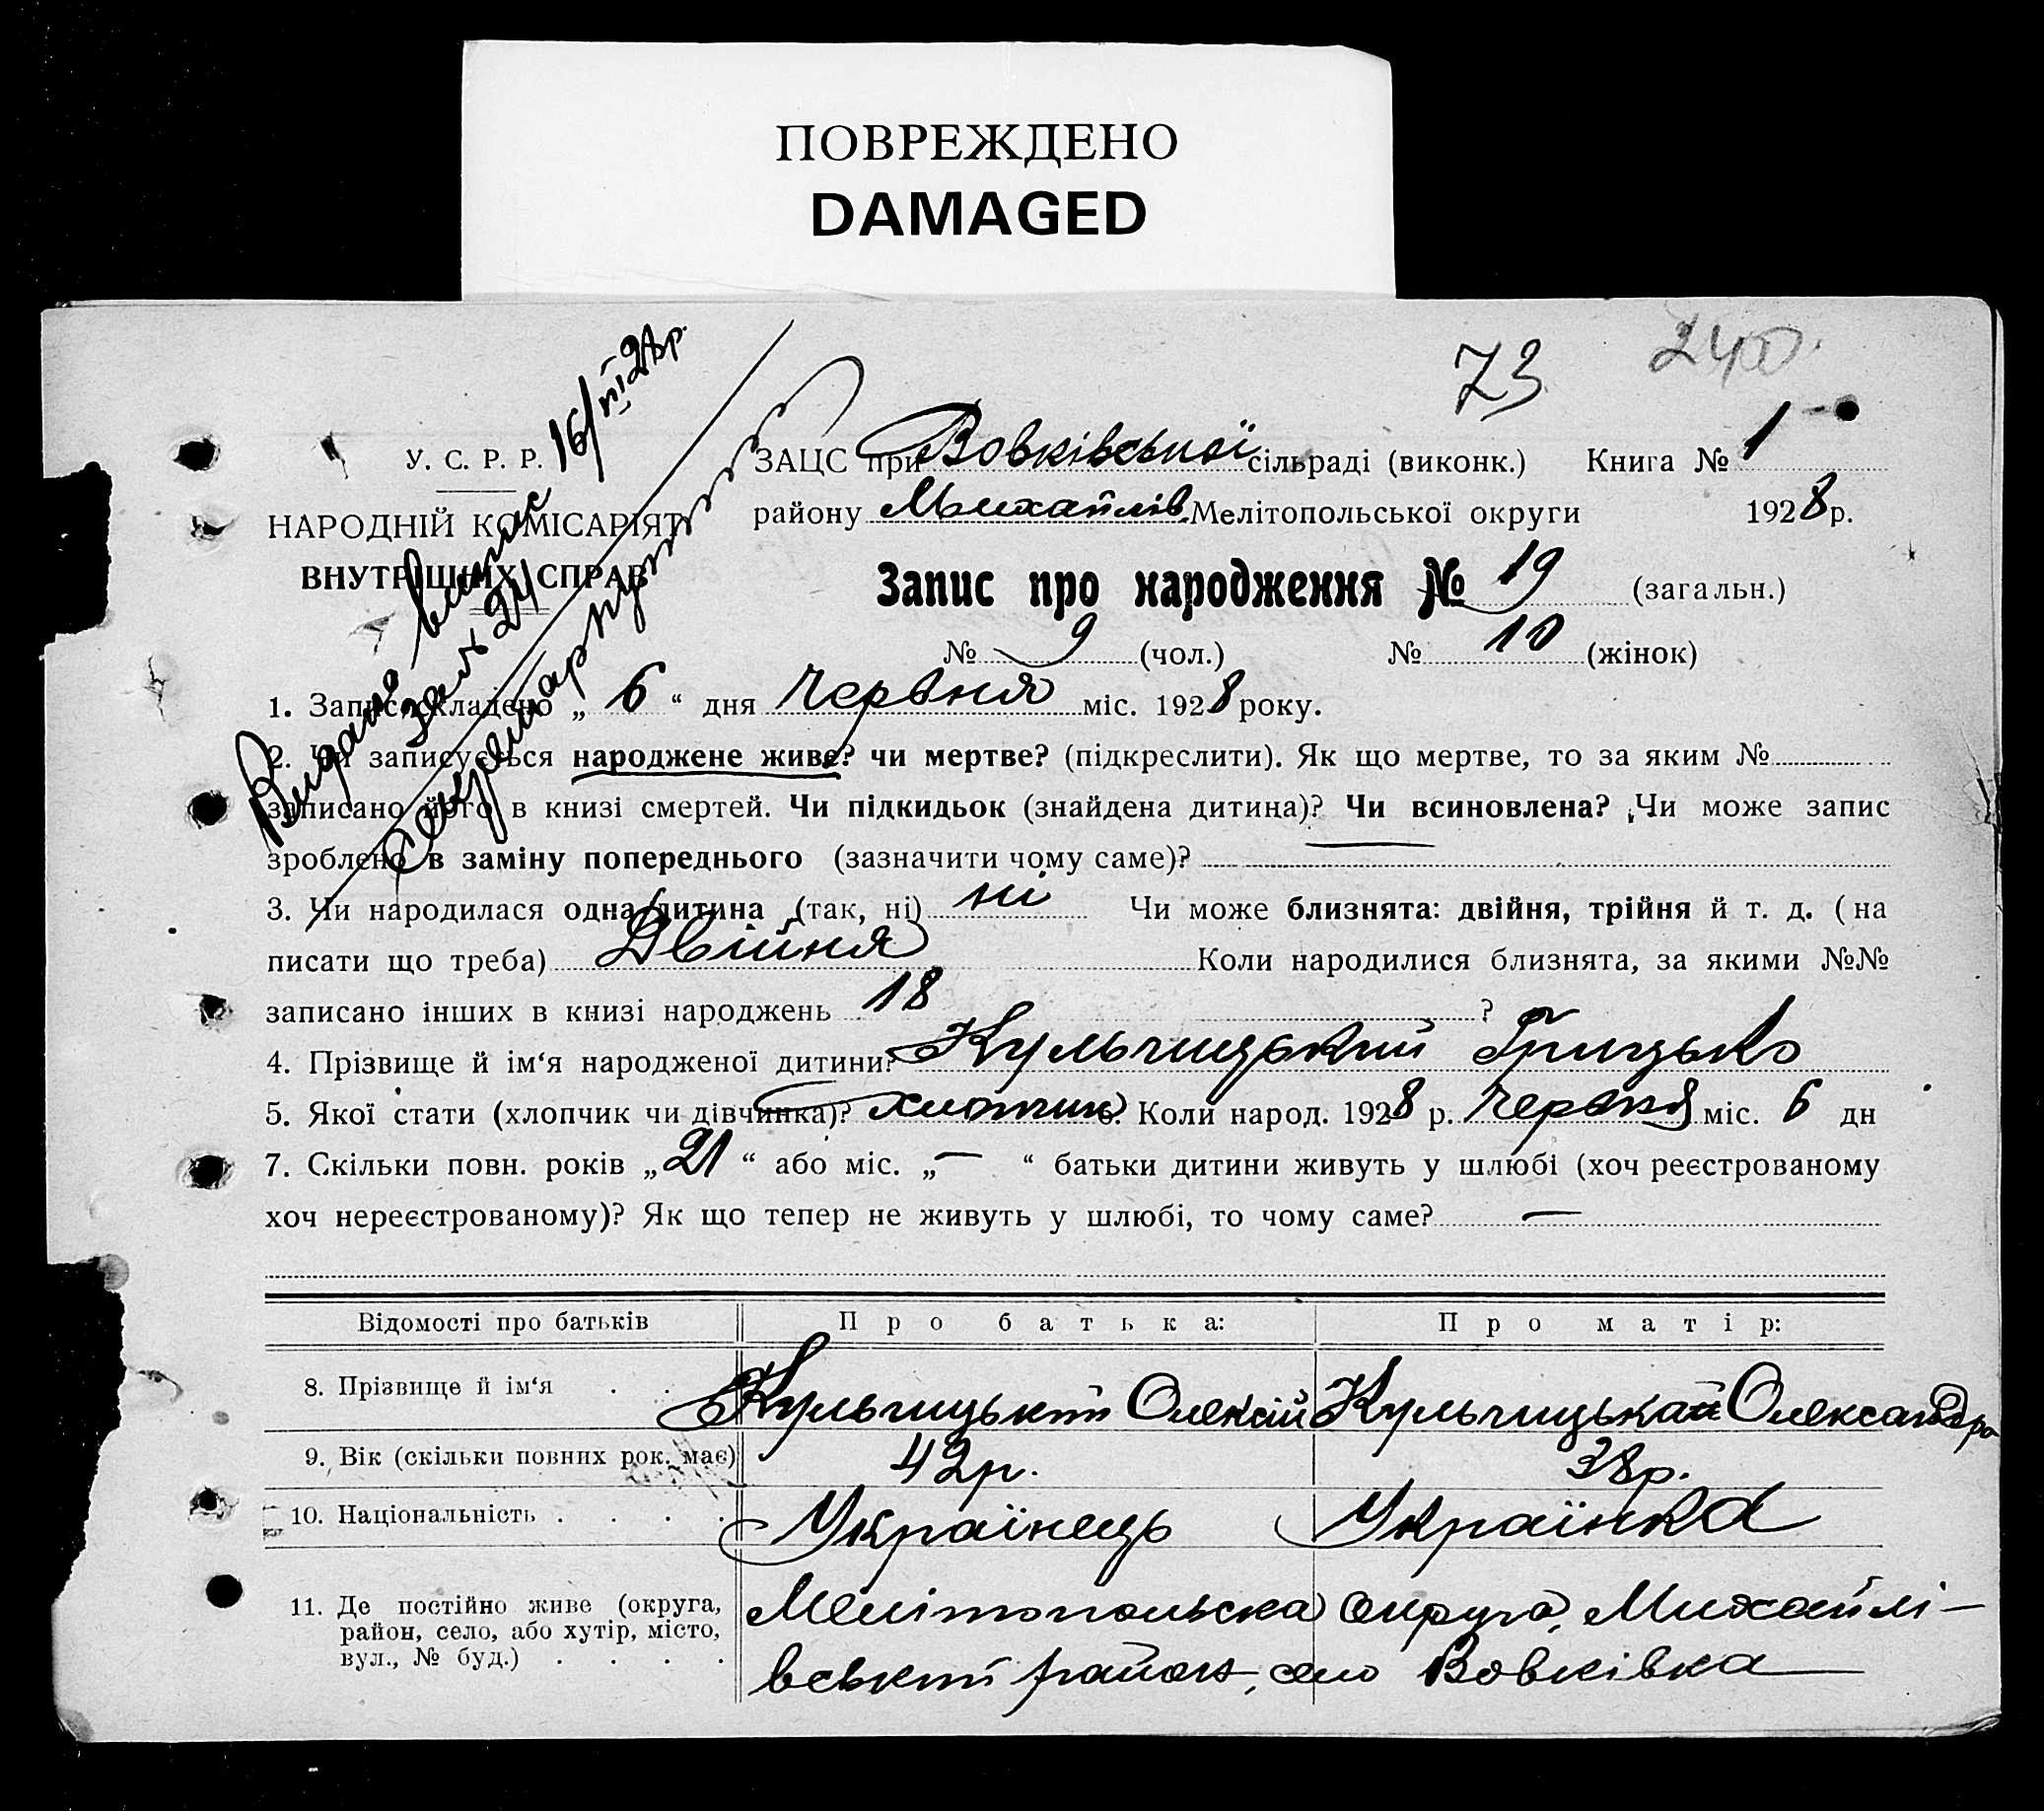 ПОВРЕЖДЕНО
DAMAGED
73
240
У. С. Р. Р.
НАРОДНІЙ КОМІСАРІЯТ
ВНУТРІШНІХ СПРАВ
Видано випис
16/VII 28р.
за № 24
Секретар
ЗАЦС при Вовківської сільраді (виконк.) Книга № 1
району Михайлів. Мелітопольської округи 1928 р.
Запис про народження № 19 (загальн.)
№ 9 (чол.) № 10 (жінок)
1. Запис складено „ 6 “ дня Червня міс. 1928 року.
2. Чи записується народжене живе? чи мертве? (підкреслити). Як що мертве, то за яким №
записано його в книзі смертей. Чи підкидьок (знайдена дитина)? Чи всиновлена? Чи може запис
зроблено в заміну попереднього (зазначити чому саме)?
3. Чи народилася одна дитина (так, ні) ні Чи може близнята: двійня, трійня й т. д. (на
писати що треба) Двійня Коли народилися близнята, за якими №№
записано інших в книзі народжень 18 ?
4. Прізвище й ім‘я народженої дитини? Кульчицький Грицько
5. Якої стати (хлопчик чи дівчинка)? хлопчик 6. Коли народ. 1928 р. Червня міс. 6 дн
7. Скільки повн. років „ 21 “ або міс. „ — “ батьки дитини живуть у шлюбі (хоч реєстрованому
хоч нереєстрованому)? Як що тепер не живуть у шлюбі, то чому саме? —
Відомості про батьків Про батька: Про матір:
8. Прізвище й ім‘я . . Кульчицький Олексій Кульчицька Олександра
9. Вік (скільки повних рок. має) 42р. 38р.
10. Національність . . . . Українець Українка
11. Де постійно живе (округа,
район, село, або хутір, місто,
вул., № буд.) . . . .
Мелітопольска округа, Михайлі-
вський район, село Вовківка